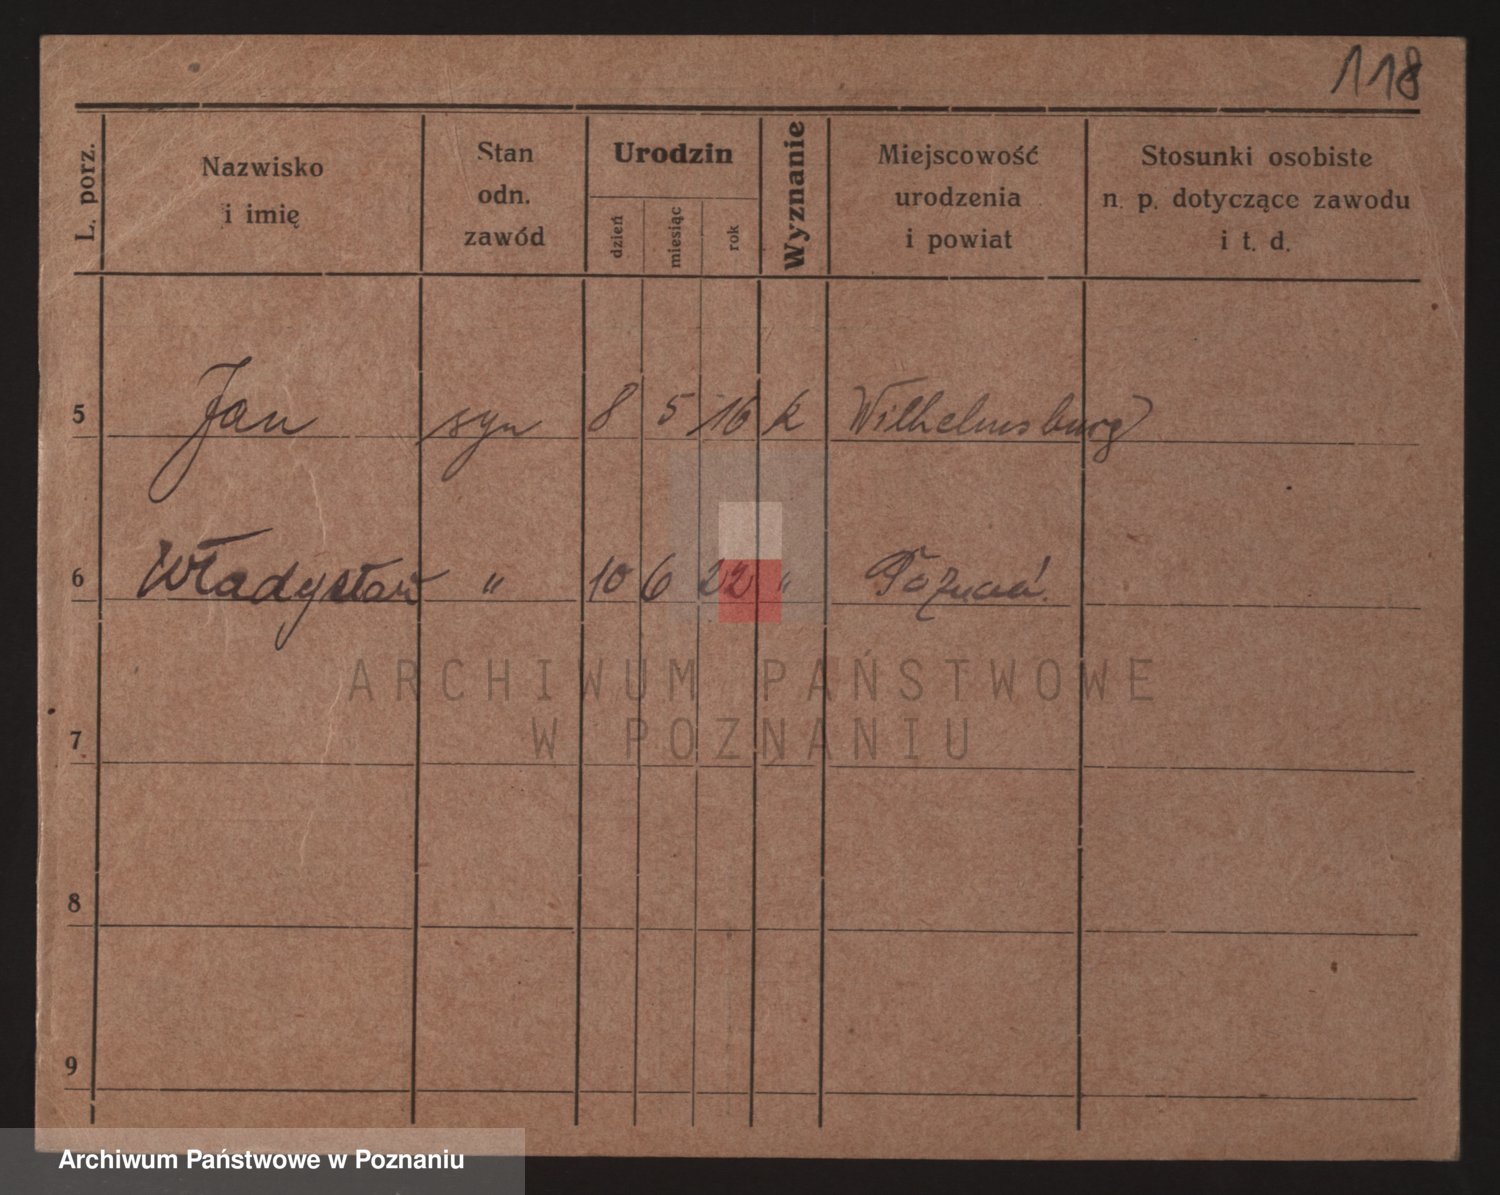 118
L. porz.
Nazwisko
i imię
Stan
odn.
zawód
Urodzin
dzień
miesiąc
rok
Wyznanie
Miejscowość
urodzenia
i powiat
Stosunki osobiste
n. p. dotyczące zawodu
i t. d.
5 Jan syn 8 5 16 k Wilhelmsburg
6 Władysław " 10 6 22 " Poznań.
ARCHIWUM PAŃSTWOWE
W POZNANIU
7
8
9
Archiwum Państwowe w Poznaniu